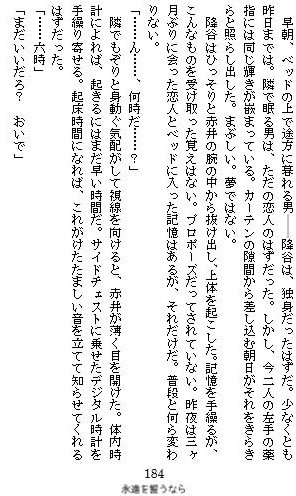 早朝、ベッドの上で途方に暮れる男――降谷は、独身だったはずだ。少なくとも
昨日までは。隣で眠る男は、ただの恋人のはずだった。しかし、今二人の左手の薬
指には同じ輝きが嵌まっている。カーテンの隙間から差し込む朝日がそれをきらき
らと照らし出した。まぶしい。夢ではない。
降谷はひっそりと赤井の腕の中から抜け出し、上体を起こした。記憶を手繰るが、
こんなものを受け取った覚えはない。プロポーズだってされていない。昨夜は三ヶ
月ぶりに会った恋人とベッドに入った記憶はあるが、それだけだ。普段と何ら変わ
りない。
「……ん……、何時だ……？」
隣でもぞりと身動ぐ気配がして視線を向けると、赤井が薄く目を開けた。体内時
計によれば、起きるにはまだ早い時間だ。サイドチェストに乗せたデジタル時計を
手繰り寄せる。起床時間になれば、これがけたたましい音を立てて知らせてくれる
はずだった。
「……六時」
「まだいいだろ？　おいで」
184
永遠を誓うなら